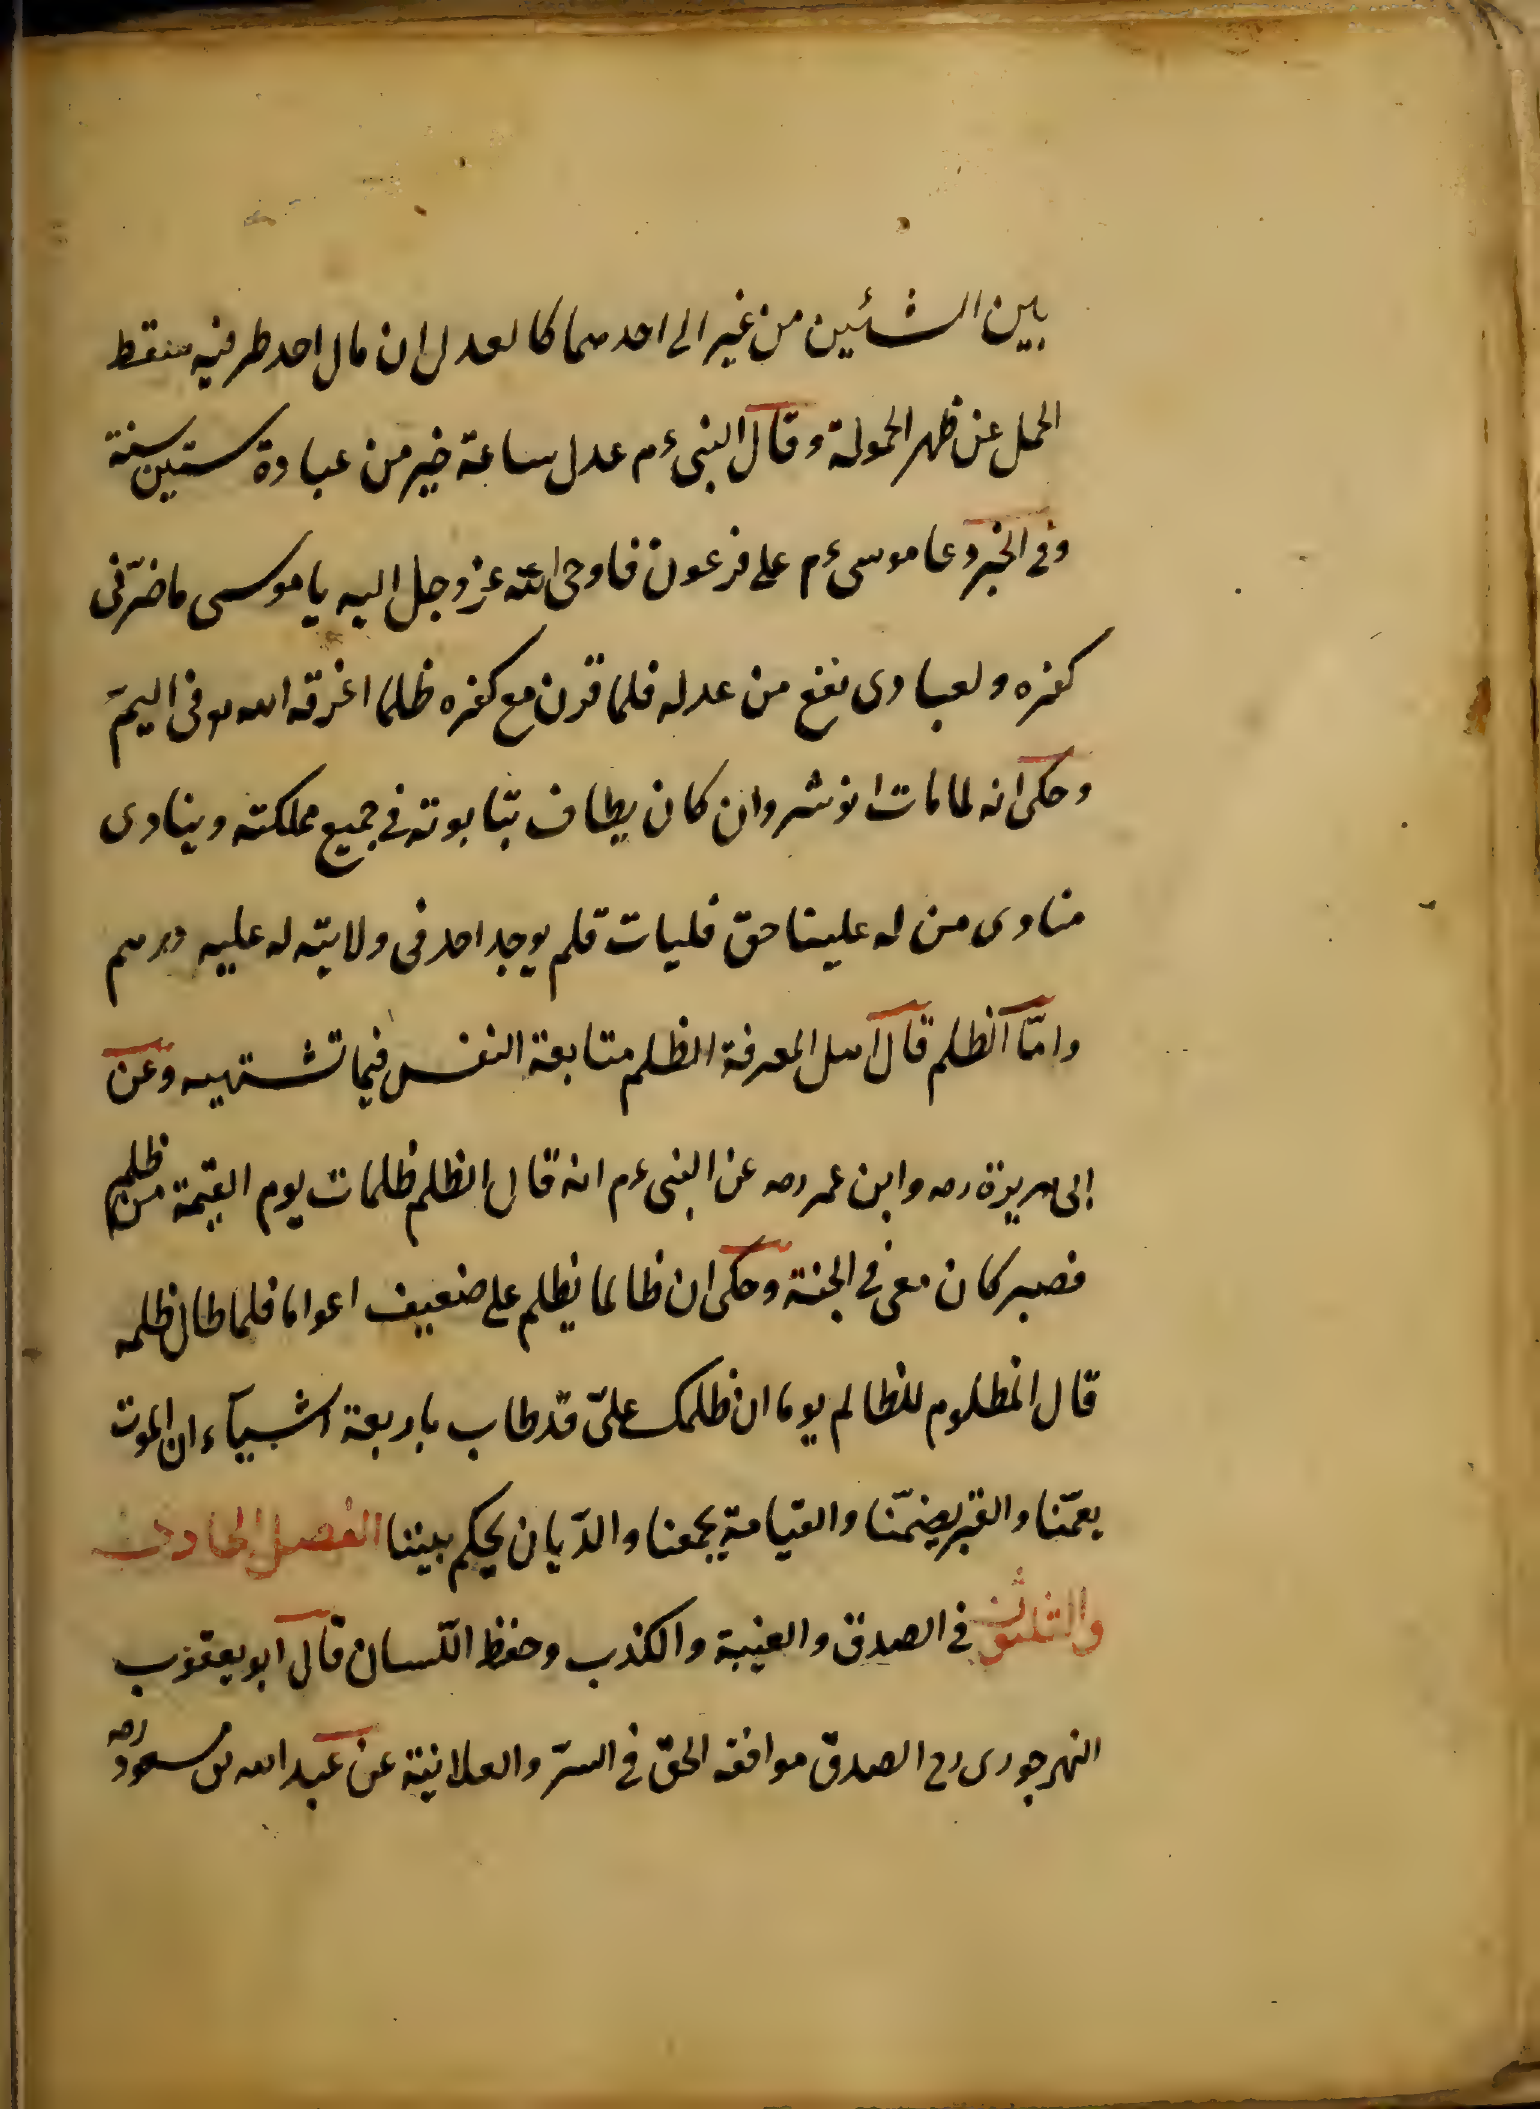 بين الشئين من غير الى احدهما كالعدل ان مال احد طرفيه سقط
الحمل عن ظهر الحمولة وقال النبى ءم عدل ساعة خير من عبادة ستين سنة
وفى الخبر دعا موسى ءم على فرعون فاوحى الله عز وجل اليه يا موسى ما ضرّنى
كفره ولعبادى نفع من عدله فلما قرن مع كفره ظلما اغرقه الله فى اليمّ
وحكى انه لما مات انوشروان كان يطاف بتابوته فى جميع مملكته وينادى
منادى من له علينا حق فليات فلم يوجد احد فى ولايته له عليه درهم
وامّا الظلم قال اهل المعرفة الظلم متابعة النفس فيما تشتهيه وعن
ابى هريرة رصه وابن عمر رصه عن النبى ءم انه قال الظلم ظلمات يوم القيمة من ظلم
فصبر كان معى فى الجنة وحكى ان ظالما يظلم على ضعيف اعواما فلما طال ظلمه
قال المظلوم للظالم يوما ان ظلمك علىّ قد طاب باربعة اشيآء ان الموت
يعمّنا والقبر يضمّنا والقيامة يجمعنا والدّيان يحكم بيننا الفصل الحادى
والثلثون فى الصدق والغيبة والكذب وحفظ اللّسان قال ابو يعقوب
النهرجورى رح الصدق موافقه الحق فى السرّ والعلانية عن عبد الله بن مسعود رصه